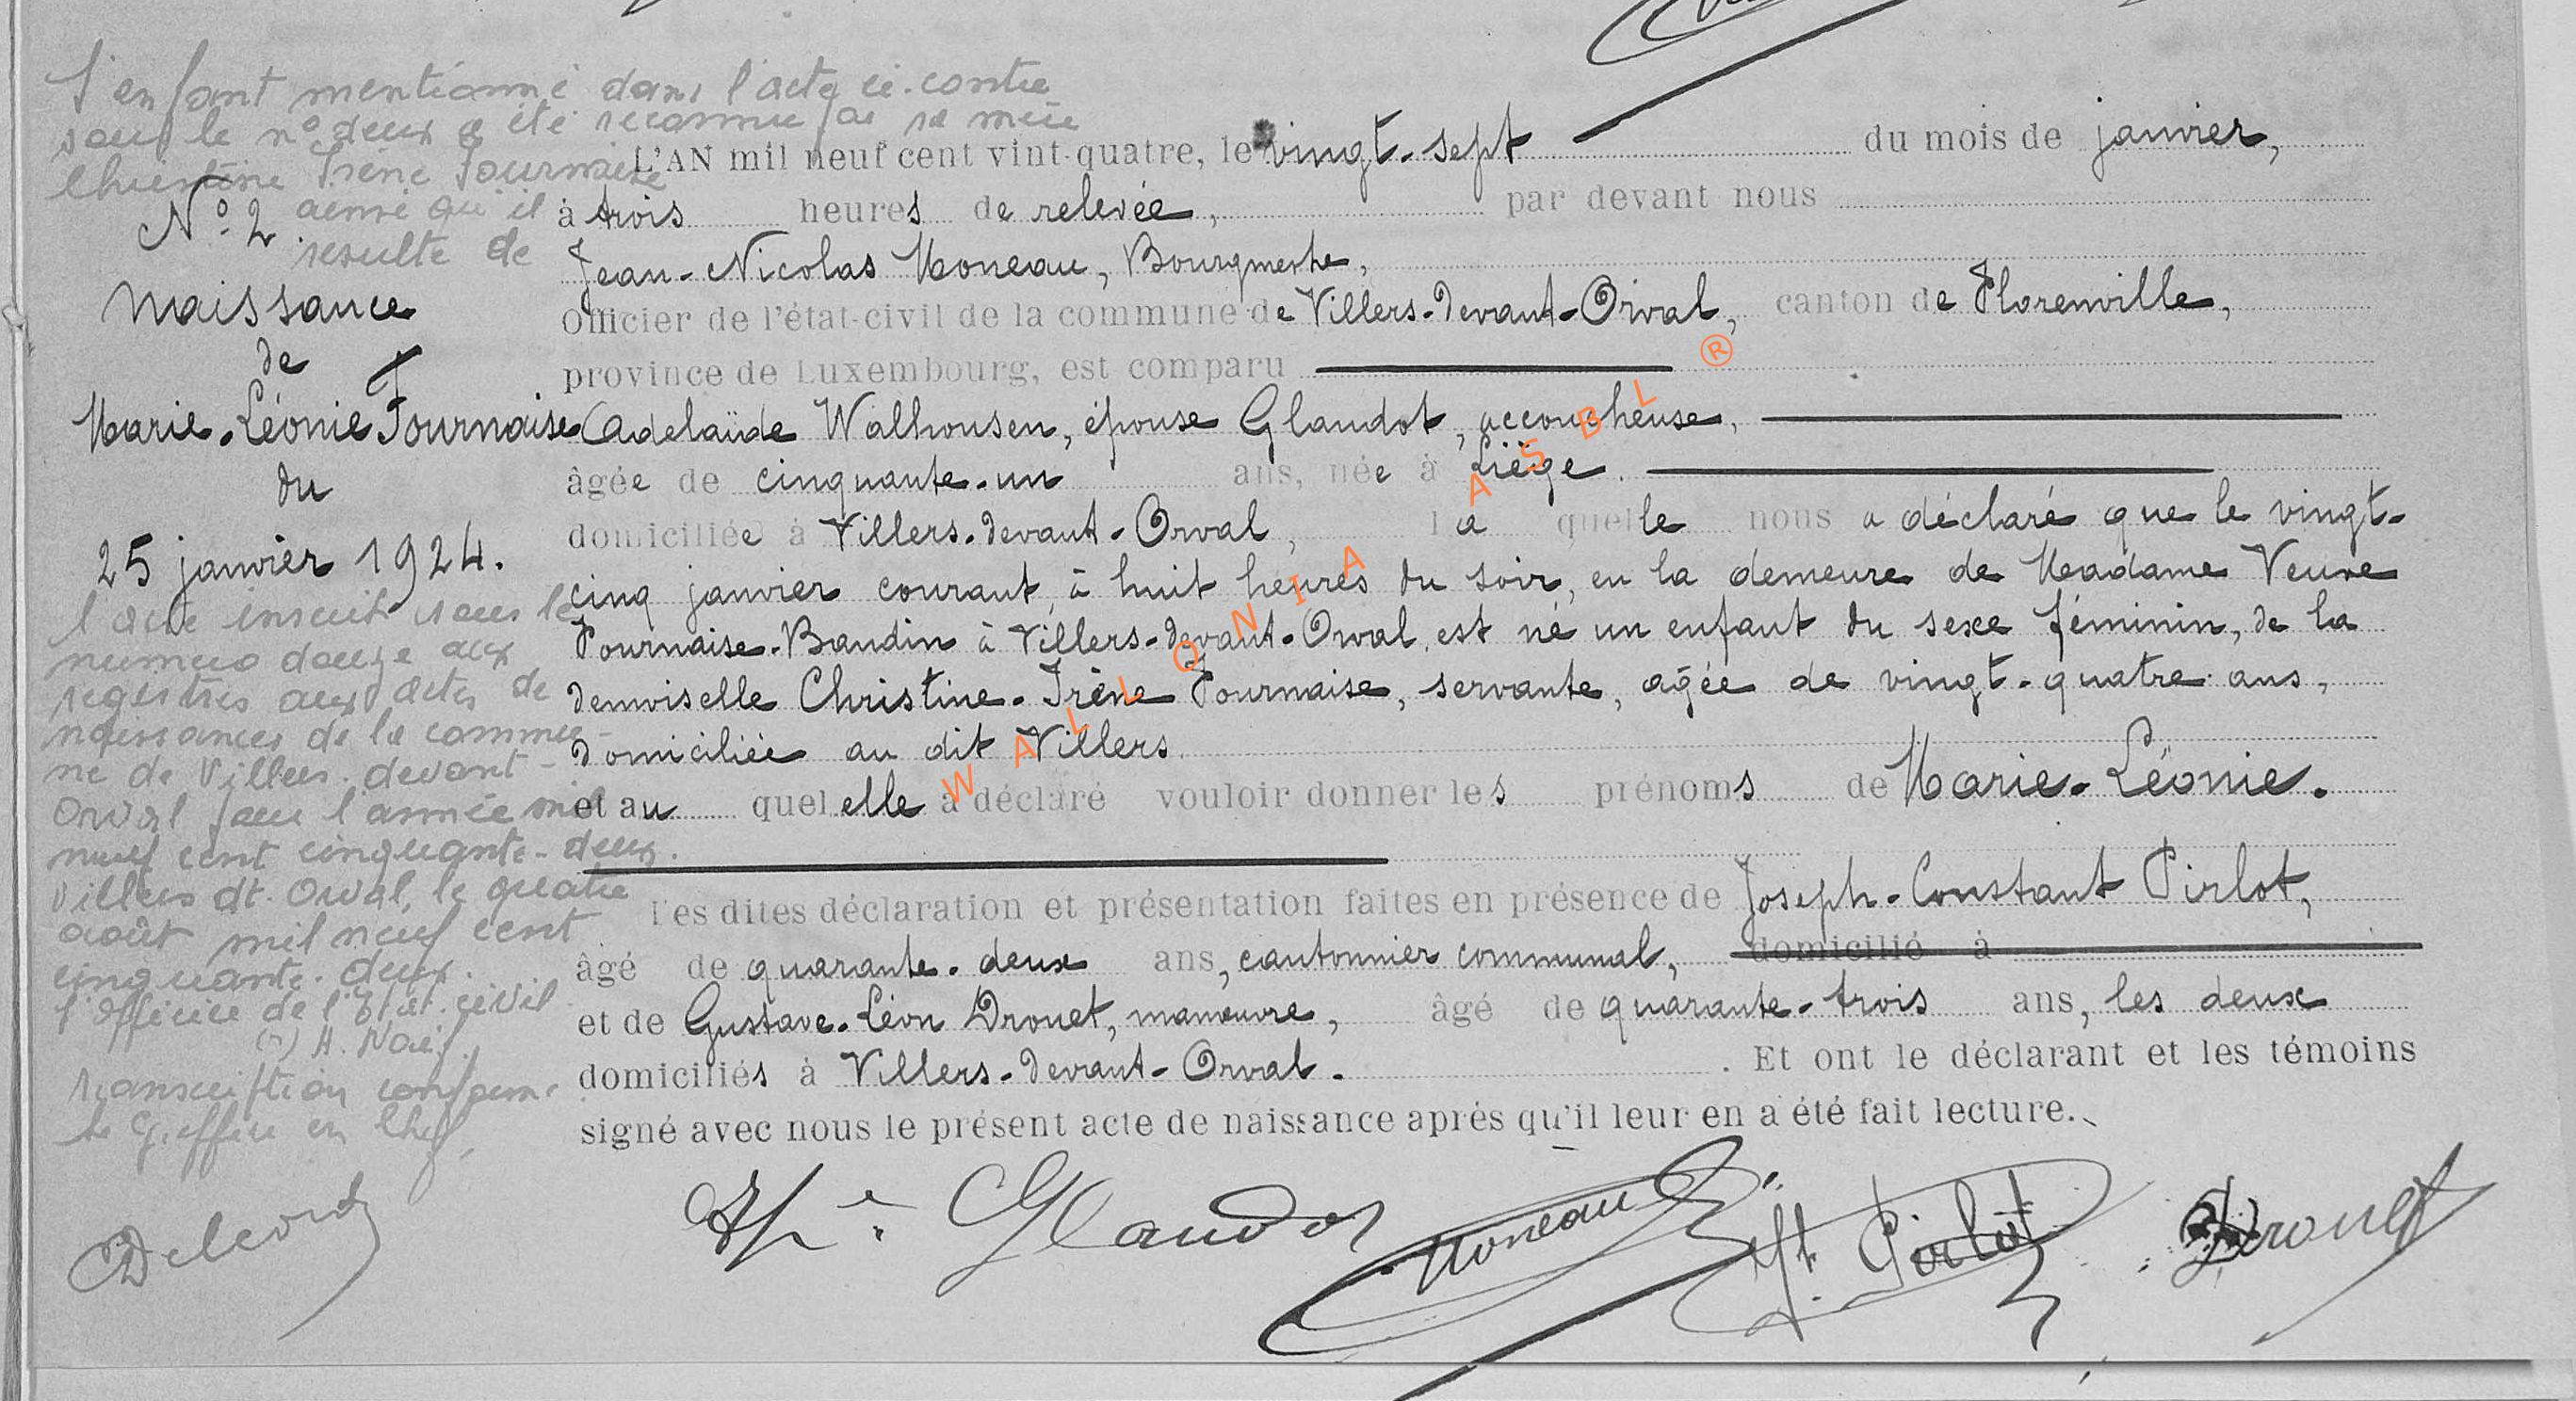 L'enfant mentionné dans l'acte ci-contre
sous le n° deux a été reconnu par sa mère
Christine Irène Fournaise
ainsi qu'il
résulte de
N° 2
Naissance
de
Marie-Léonie Fournaise
du
25 janvier 1924.
l'acte inscrit sous le
numéro douze aux
registres aux actes de
naissances de la commu-
ne de Villers-devant-
Orval pour l'année mil
neuf cent cinquante-deux.
Villers dt. Orval, le quatre
août mil neuf cent
cinquante-deux.
l'officier de l'Etat-civil
(s) H.
Transcription conforme
Le Greffier en Chef,
L'AN mil neuf cent vint-quatre, le vingt-sept du mois de janvier,
à trois heures de relevée, par devant nous
Jean-Nicolas Moneau, Bourgmestre,
Officier de l'état-civil de la commune de Villers-devant-Orval, canton de Florenville,
province de Luxembourg, est comparu
Adelaïde Walhousen, épouse Glaudot, accoucheuse,
âgée de cinquante-un ans, née à Liège.
domiciliée à Villers-devant-Orval, la quelle nous a déclaré que le vingt-
cinq janvier courant, à huit heures du soir, en la demeure de Madame Veuve
Fournaise-Baudin à Villers-devant-Orval, est né un enfant du sexe féminin, de la
demoiselle Christine-Irène Fournaise, servante, agée de vingt-quatre ans,
domiciliée au dit Villers.
et au quel elle a déclaré vouloir donner les prénoms de Marie-Léonie.
Les dites déclaration et présentation faites en présence de Joseph-Constant Pirlot,
âgé de quarante-deux ans, cantonnier communal, domicilié à
et de Gustave-Léon Drouet, manœuvre, âgé de quarante-trois ans, les deux
domiciliés à Villers-devant-Orval. Et ont le déclarant et les témoins
signé avec nous le présent acte de naissance après qu'il leur en a été fait lecture.
Glaudot Moneau Pirlot Drouet
WALLONIA ASBL ®